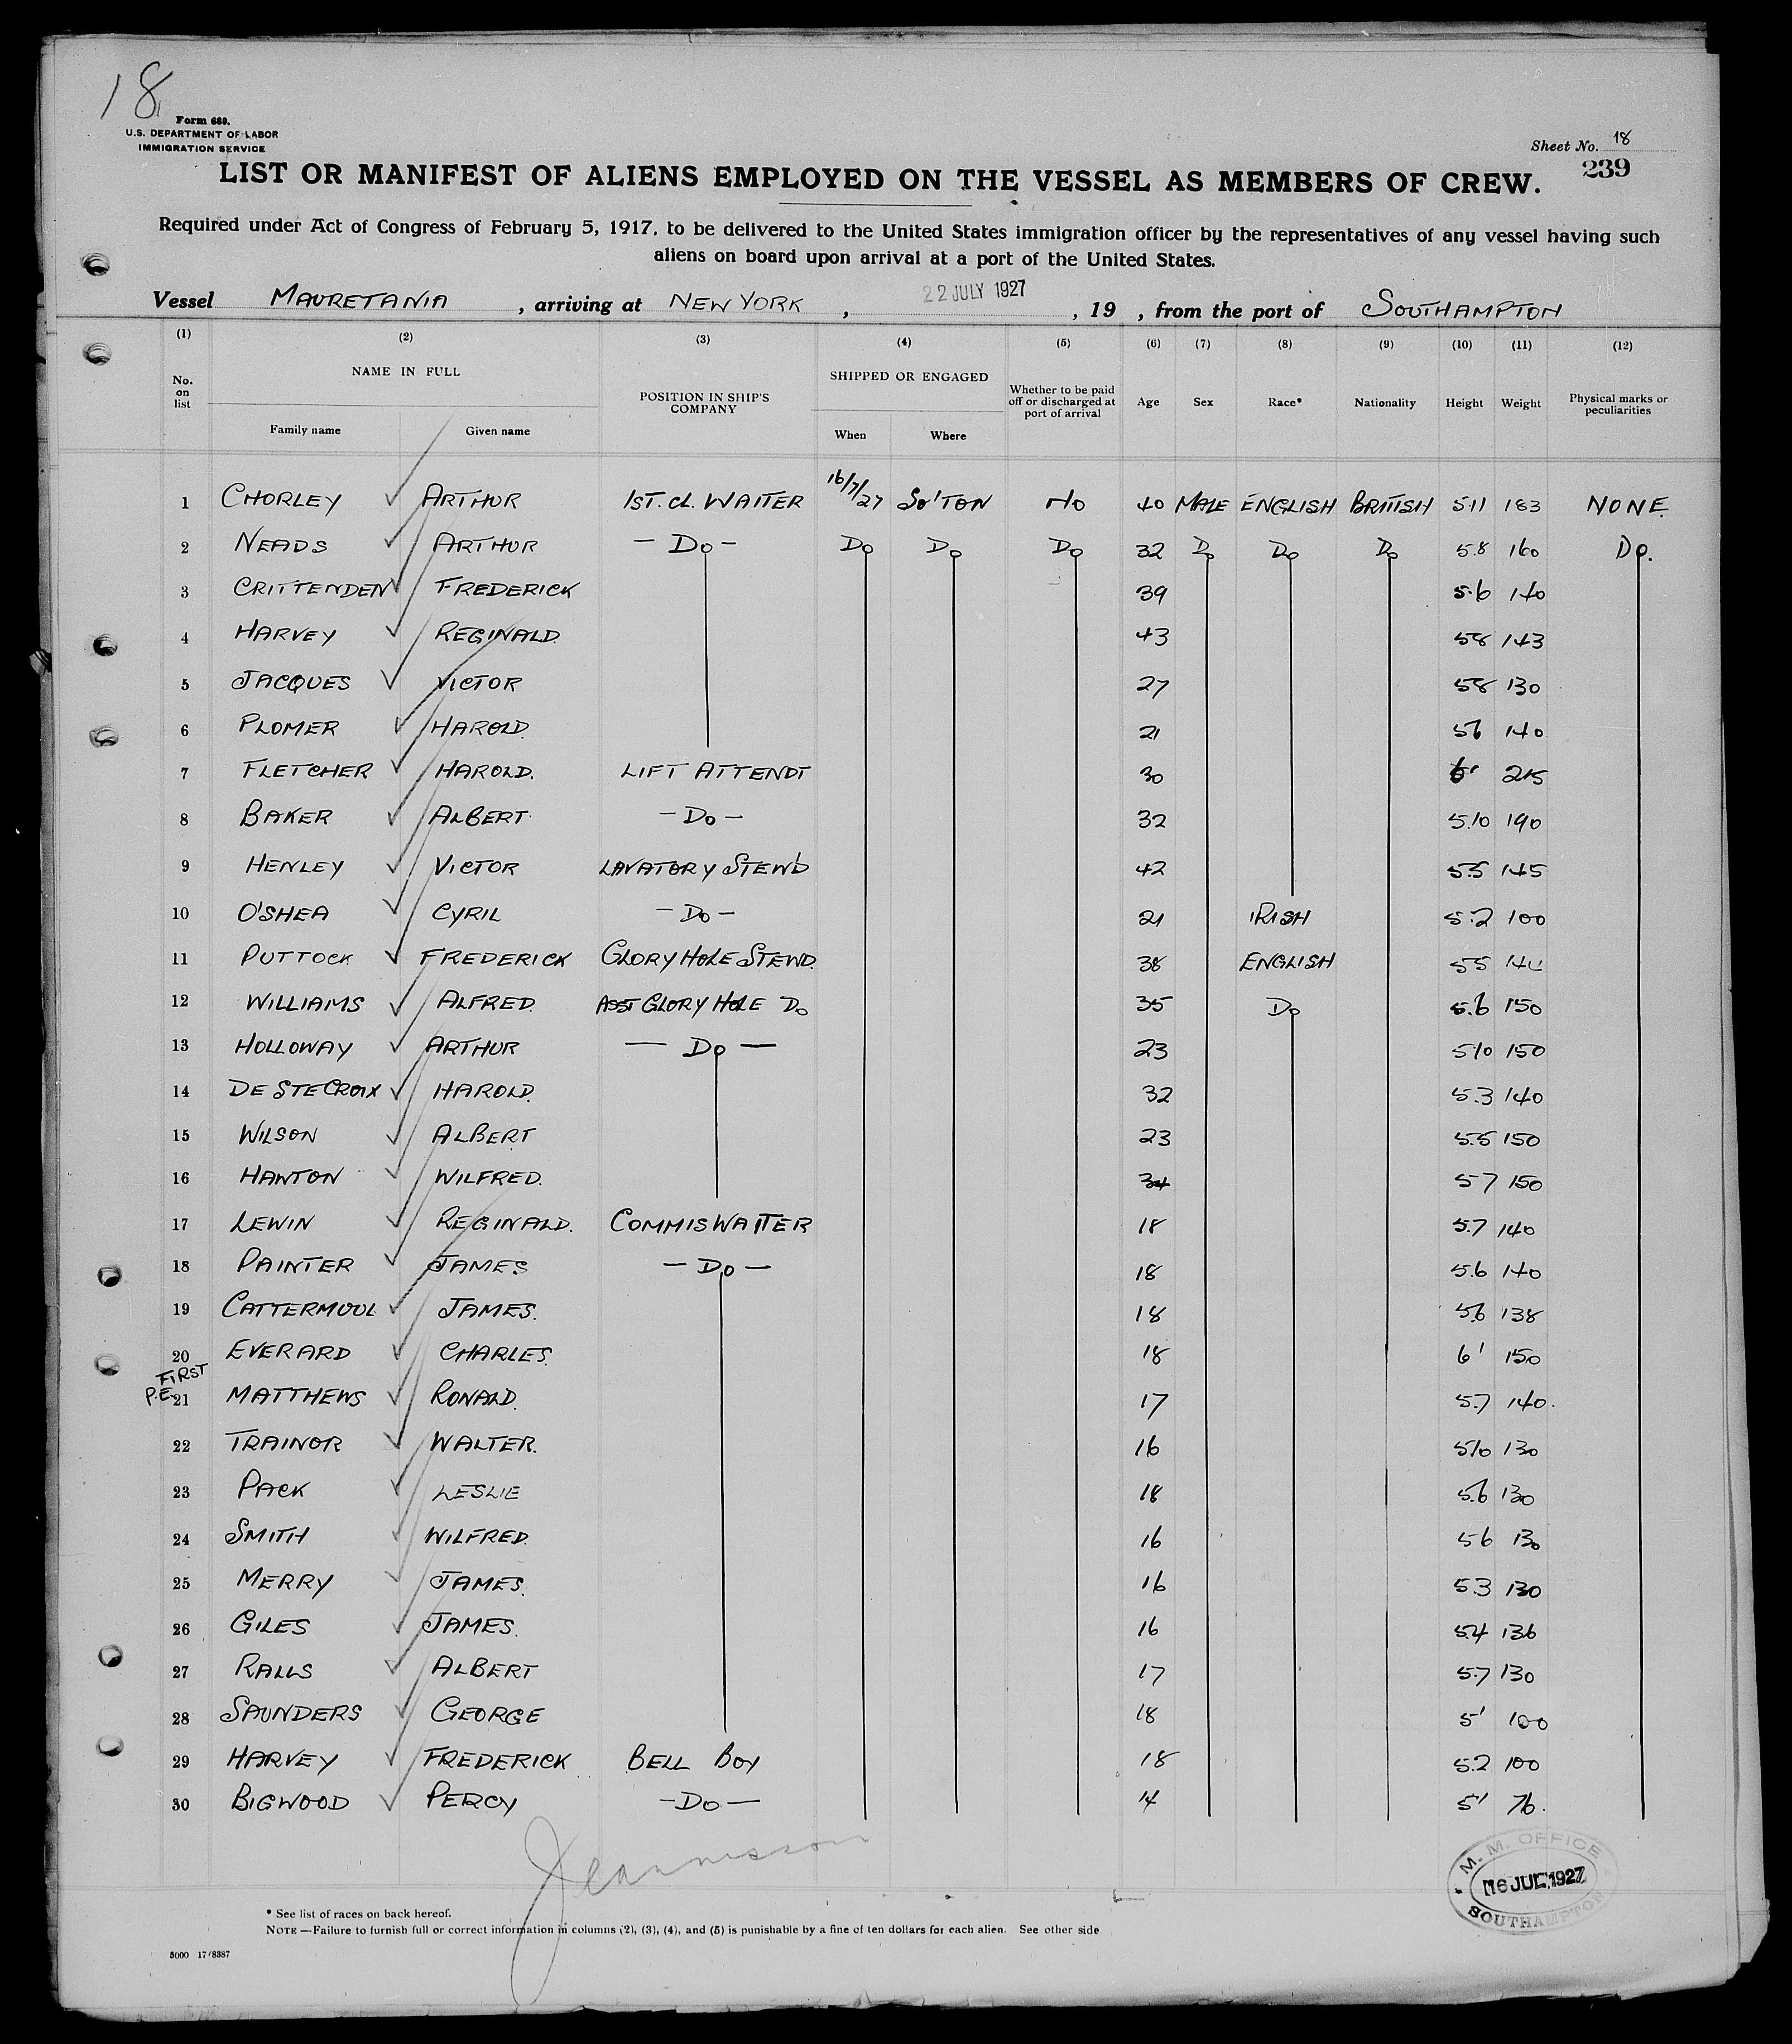 18
Form 680.
U.S. DEPARTMENT OF LABOR
IMMIGRATION SERVICE
Sheet No. 18
239
LIST OR MANIFEST OF ALIENS EMPLOYED ON THE VESSEL AS MEMBERS OF CREW.
Required under Act of Congress of February 5, 1917, to be delivered to the United States immigration officer by the representatives of any vessel having such
aliens on board upon arrival at a port of the United States.
Vessel MAURETANIA , arriving at NEW YORK , 22 JULY 1927 , 19 , from the port of SOUTHAMPTON
(1) (2) (3) (4) (5) (6) (7) (8) (9) (10) (11) (12)
No. on list NAME IN FULL Family name Given name POSITION IN SHIP'S COMPANY SHIPPED OR ENGAGED When Where Whether to be paid off or discharged at port of arrival Age Sex Race* Nationality Height Weight Physical marks or peculiarities
1 CHORLEY ARTHUR 1ST. CL. WAITER 16/7/27 SO'TON No 40 MALE ENGLISH BRITISH 5.11 183 NONE
2 NEADS ARTHUR - Do - Do Do Do 32 Do Do Do 5.8 160 Do.
3 CRITTENDEN FREDERICK 39 5.6 140
4 HARVEY REGINALD. 43 58 143
5 JACQUES VICTOR 27 58 130
6 PLOMER HAROLD. 21 140
7 FLETCHER HAROLD. LIFT ATTENDT 30 6' 215
8 BAKER ALBERT - Do - 32 5.10 190
9 HENLEY VICTOR LAVATORY STEWD 42 5.5 145
10 O'SHEA CYRIL - Do - 21 IRISH 5.2 100
11 PUTTOCK FREDERICK GLORY HOLE STEWD. 38 ENGLISH 55 140
12 WILLIAMS ALFRED. ASST GLORY HOLE Do 35 Do 5.6 150
13 HOLLOWAY ARTHUR - Do - 23 510 150
14 DE STE CROIX HAROLD. 32 5.3 140
15 WILSON ALBERT 23 5.5 150
16 HAWTON WILFRED. 34 57 150
17 LEWIN REGINALD. COMMIS WAITER 18 5.7 140
18 PAINTER JAMES - Do - 18 5.6 140
19 CATTERMOUL JAMES. 18 5.6 138
20 EVERARD CHARLES. 18 6' 150
FIRST
P.E. 21 MATTHEWS RONALD. 17 5.7 140.
22 TRAINOR WALTER. 16 510 130
23 PACK LESLIE 18 5.6 130
24 SMITH WILFRED. 16 56 130
25 MERRY JAMES. 16 5.3 130
26 GILES JAMES. 16 5.4 136
27 RALLS ALBERT 17 5.7 130
28 SAUNDERS GEORGE 18 5' 100
29 HARVEY FREDERICK BELL BOY 18 5.2 100
30 BIGWOOD PERCY - Do - 14 5' 76.
M. M. OFFICE
16 JUL 1927
SOUTHAMPTON
* See list of races on back hereof.
NOTE—Failure to furnish full or correct information in columns (2), (3), (4), and (5) is punishable by a fine of ten dollars for each alien. See other side
5000 17/8387